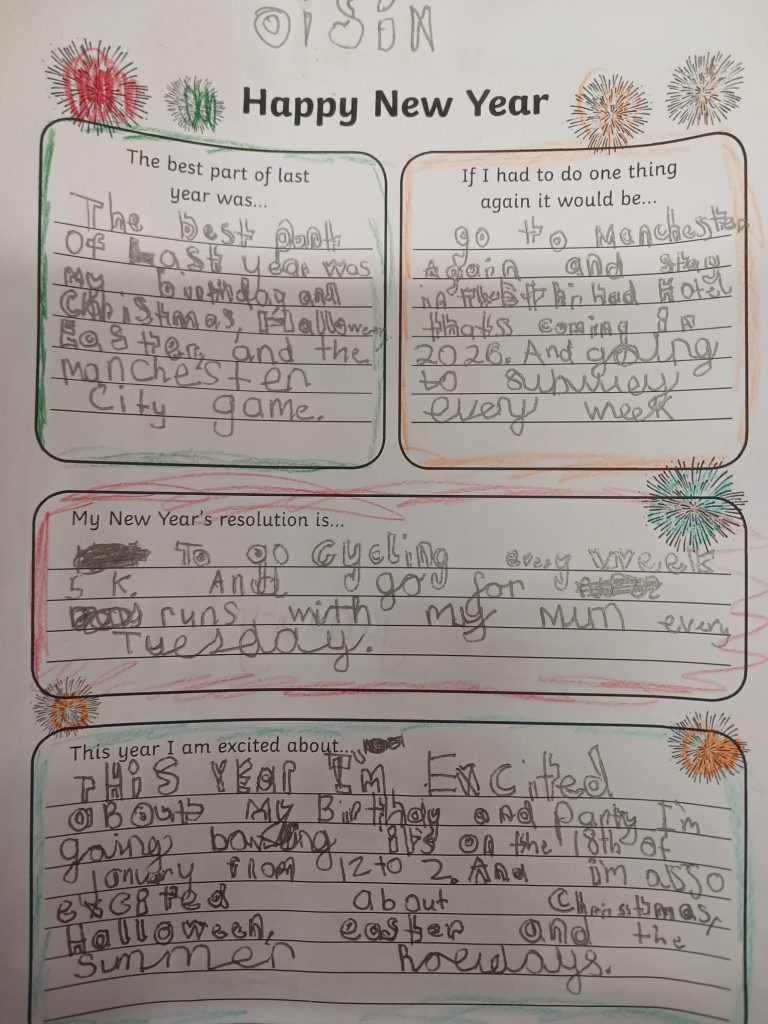 OISIN
Happy New Year
The best part of last
year was...
The best part
Of Last year was
my birthday and
Christmas, Halloween,
Easter, and the
manchester
City game.
If I had to do one thing
again it would be...
go to Manchester
Again and stay
in the
Hotel
thats coming in
2026. And going
to subway
every week
My New Year's resolution is...
To go Cycling every week
5 K. And go for
runs with my mum every
Tuesday.
This year I am excited about...
THiS YEAr I'm Excited
about My Birthday and Party I'm
going on the 18th of
January from 12 to 2. And im asso
excited about Christmas,
Halloween, easter and the
Summer